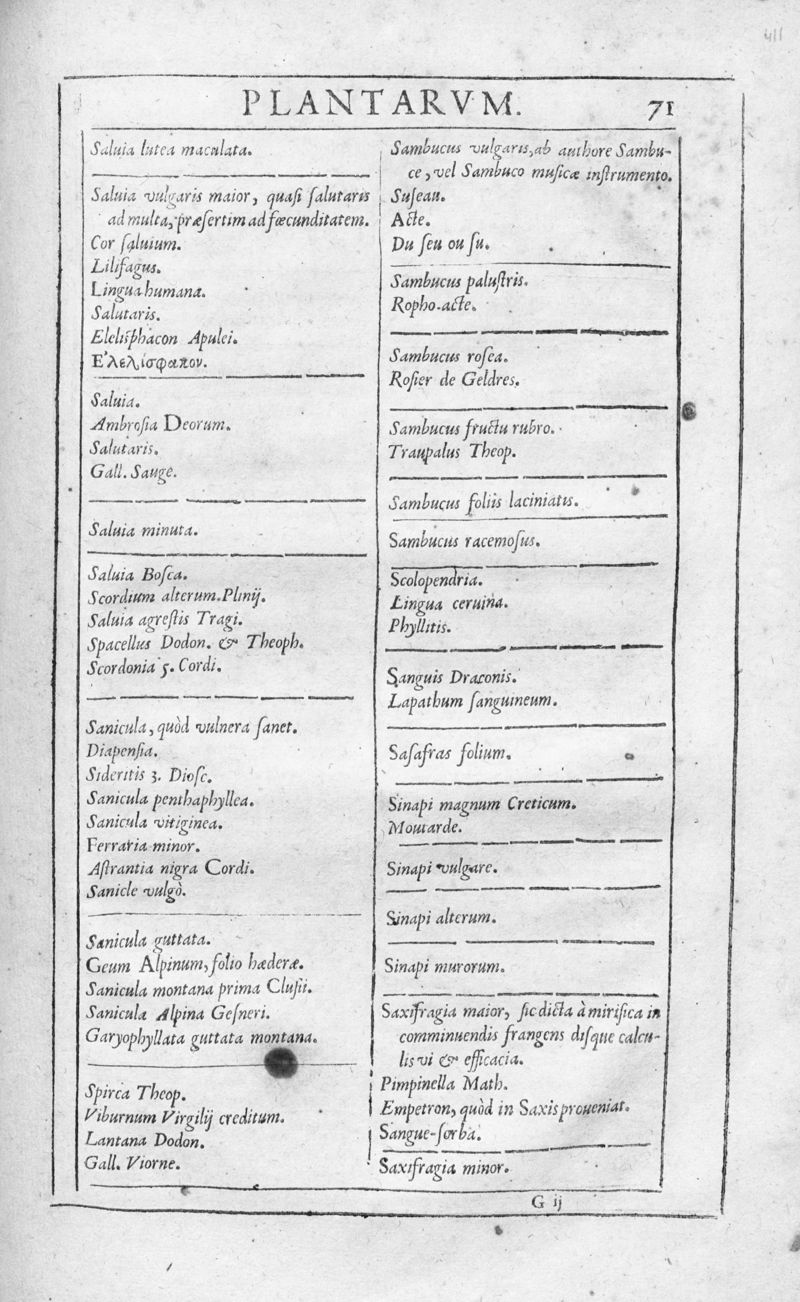 411
PLANTARVM. 71
Saluia lutea maculata.
Saluia vulgaris maior, quasi ſalutaris
ad multa, præſertim ad fœcunditatem.
Cor ſaluium.
Liliſagus.
Lingua humana.
Salutaris.
Eleliſphacon Apulei.
Ε᾽λελίσφαπον.
Saluia.
Ambroſia Deorum.
Salutaris.
Gall. Sauge.
Saluia minuta.
Saluia Boſca.
Scordium alterum. Plinij.
Saluia agreſtis Tragi.
Spacellus Dodon. & Theoph.
Scordonia 5. Cordi.
Sanicula, quòd vulnera ſanet.
Diapenſia.
Sideritis 3. Dioſc.
Sanicula penthaphyllea.
Sanicula vitiginea.
Ferraria minor.
Aſtrantia nigra Cordi.
Sanicle vulgò.
Sanicula guttata.
Geum Alpinum, folio hæderæ.
Sanicula montana prima Cluſii.
Sanicula Alpina Geſneri.
Garyophyllata guttata montana.
Spirca Theop.
Viburnum Virgilij creditum.
Lantana Dodon.
Gall. Viorne.
Sambucus vulgaris, ab authore Sambu-
ce, vel Sambuco muſicæ inſtrumento.
Suſeau.
Acte.
Du ſeu ou ſu.
Sambucus paluſtris.
Ropho-acte.
Sambucus roſea.
Roſier de Geldres.
Sambucus fructu rubro.
Traupalus Theop.
Sambucus foliis laciniatis.
Sambucus racemoſus.
Scolopendria.
Lingua ceruina.
Phyllitis.
Sanguis Draconis.
Lapathum ſanguineum.
Saſafras folium.
Sinapi magnum Creticum.
Moutarde.
Sinapi vulgare.
Sinapi alterum.
Sinapi murorum.
Saxifragia maior, ſic dicta à mirifica in
comminuendis frangens diſque calcu-
lis vi & efficacia.
Pimpinella Math.
Empetron, quòd in Saxis proueniat.
Sangue-ſorba.
Saxifragia minor.
G ij